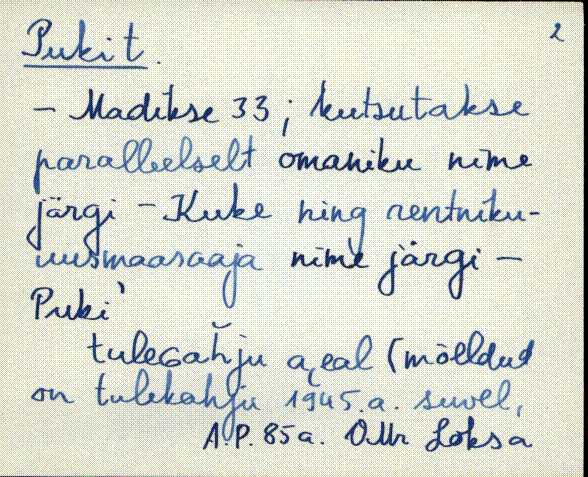 2
Pukit.
- Madikse 33; kutsutakse
paralleelselt omaniku nime
järgi - Kuke ning rentniku-
uusmaasaaja nime järgi -
Puki'
tulecahju aeal (mõeldud
on tulekahju 1945.a. suvel,
A.P. 85a. Loksa